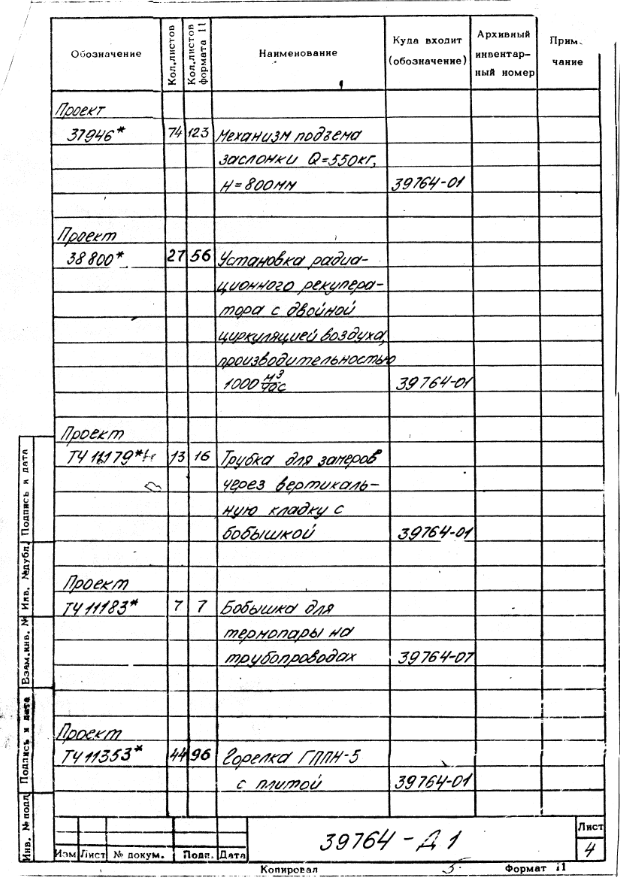 Обозначение Кол.листов Кол.листов формата 11 Наименование Куда входит (обозначение) Архивный инвентар-ный номер Прим. чание
Проект
37946* 74 123 Механизм подъема
заслонки Q=550кг,
Н=800мм 39764-01
Проект
38800* 27 56 Установка радиа-
ционного рекупера-
тора с двойной
циркуляцией воздуха,
производительностью
1000 м³/час 39764-01
Проект
ТЧ 11179* 13 16 Трубка для замеров
через вертикаль-
ную кладку с
бобышкой 39764-01
Проект
ТЧ 11183* 7 7 Бобышка для
термопары на
трубопроводах 39764-01
Проект
ТЧ 11353* 44 96 Горелка ГППН-5
с плитой 39764-01
Инв. № подл. Подпись и дата Взам.инв. № Инв. №дубл. Подпись и дата
39764-Д1
Лист
4
Изм Лист № докум. Подп. Дата
Копировал Формат 11